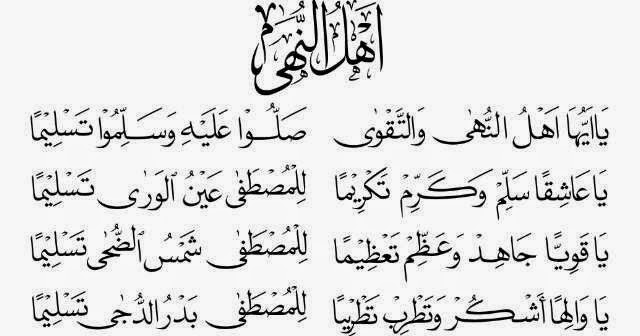 اَهْلُ النُّهٰى
يَااَيُّهَا اَهْلُ النُّهٰى وَالتَّقْوٰى صَلُّوْا عَلَيْهِ وَسَلِّمُوْا تَسْلِيْمًا
يَا عَاشِقًا سَلِّمْ وَكَرِّمْ تَكْرِيْمًا لِلْمُصْطَفٰى عَيْنُ الْوَرٰى تَسْلِيْمًا
يَا قَوِيًّا جَاهِدْ وَعَظِّمْ تَعْظِيْمًا لِلْمُصْطَفٰى شَمْسُ الضُّحٰى تَسْلِيْمًا
يَا وَالِهًا أُشْكُرْ وَتَطْرِبْ تَطْرِيْبًا لِلْمُصْطَفٰى بَدْرُ الدُّجٰى تَسْلِيْمًا